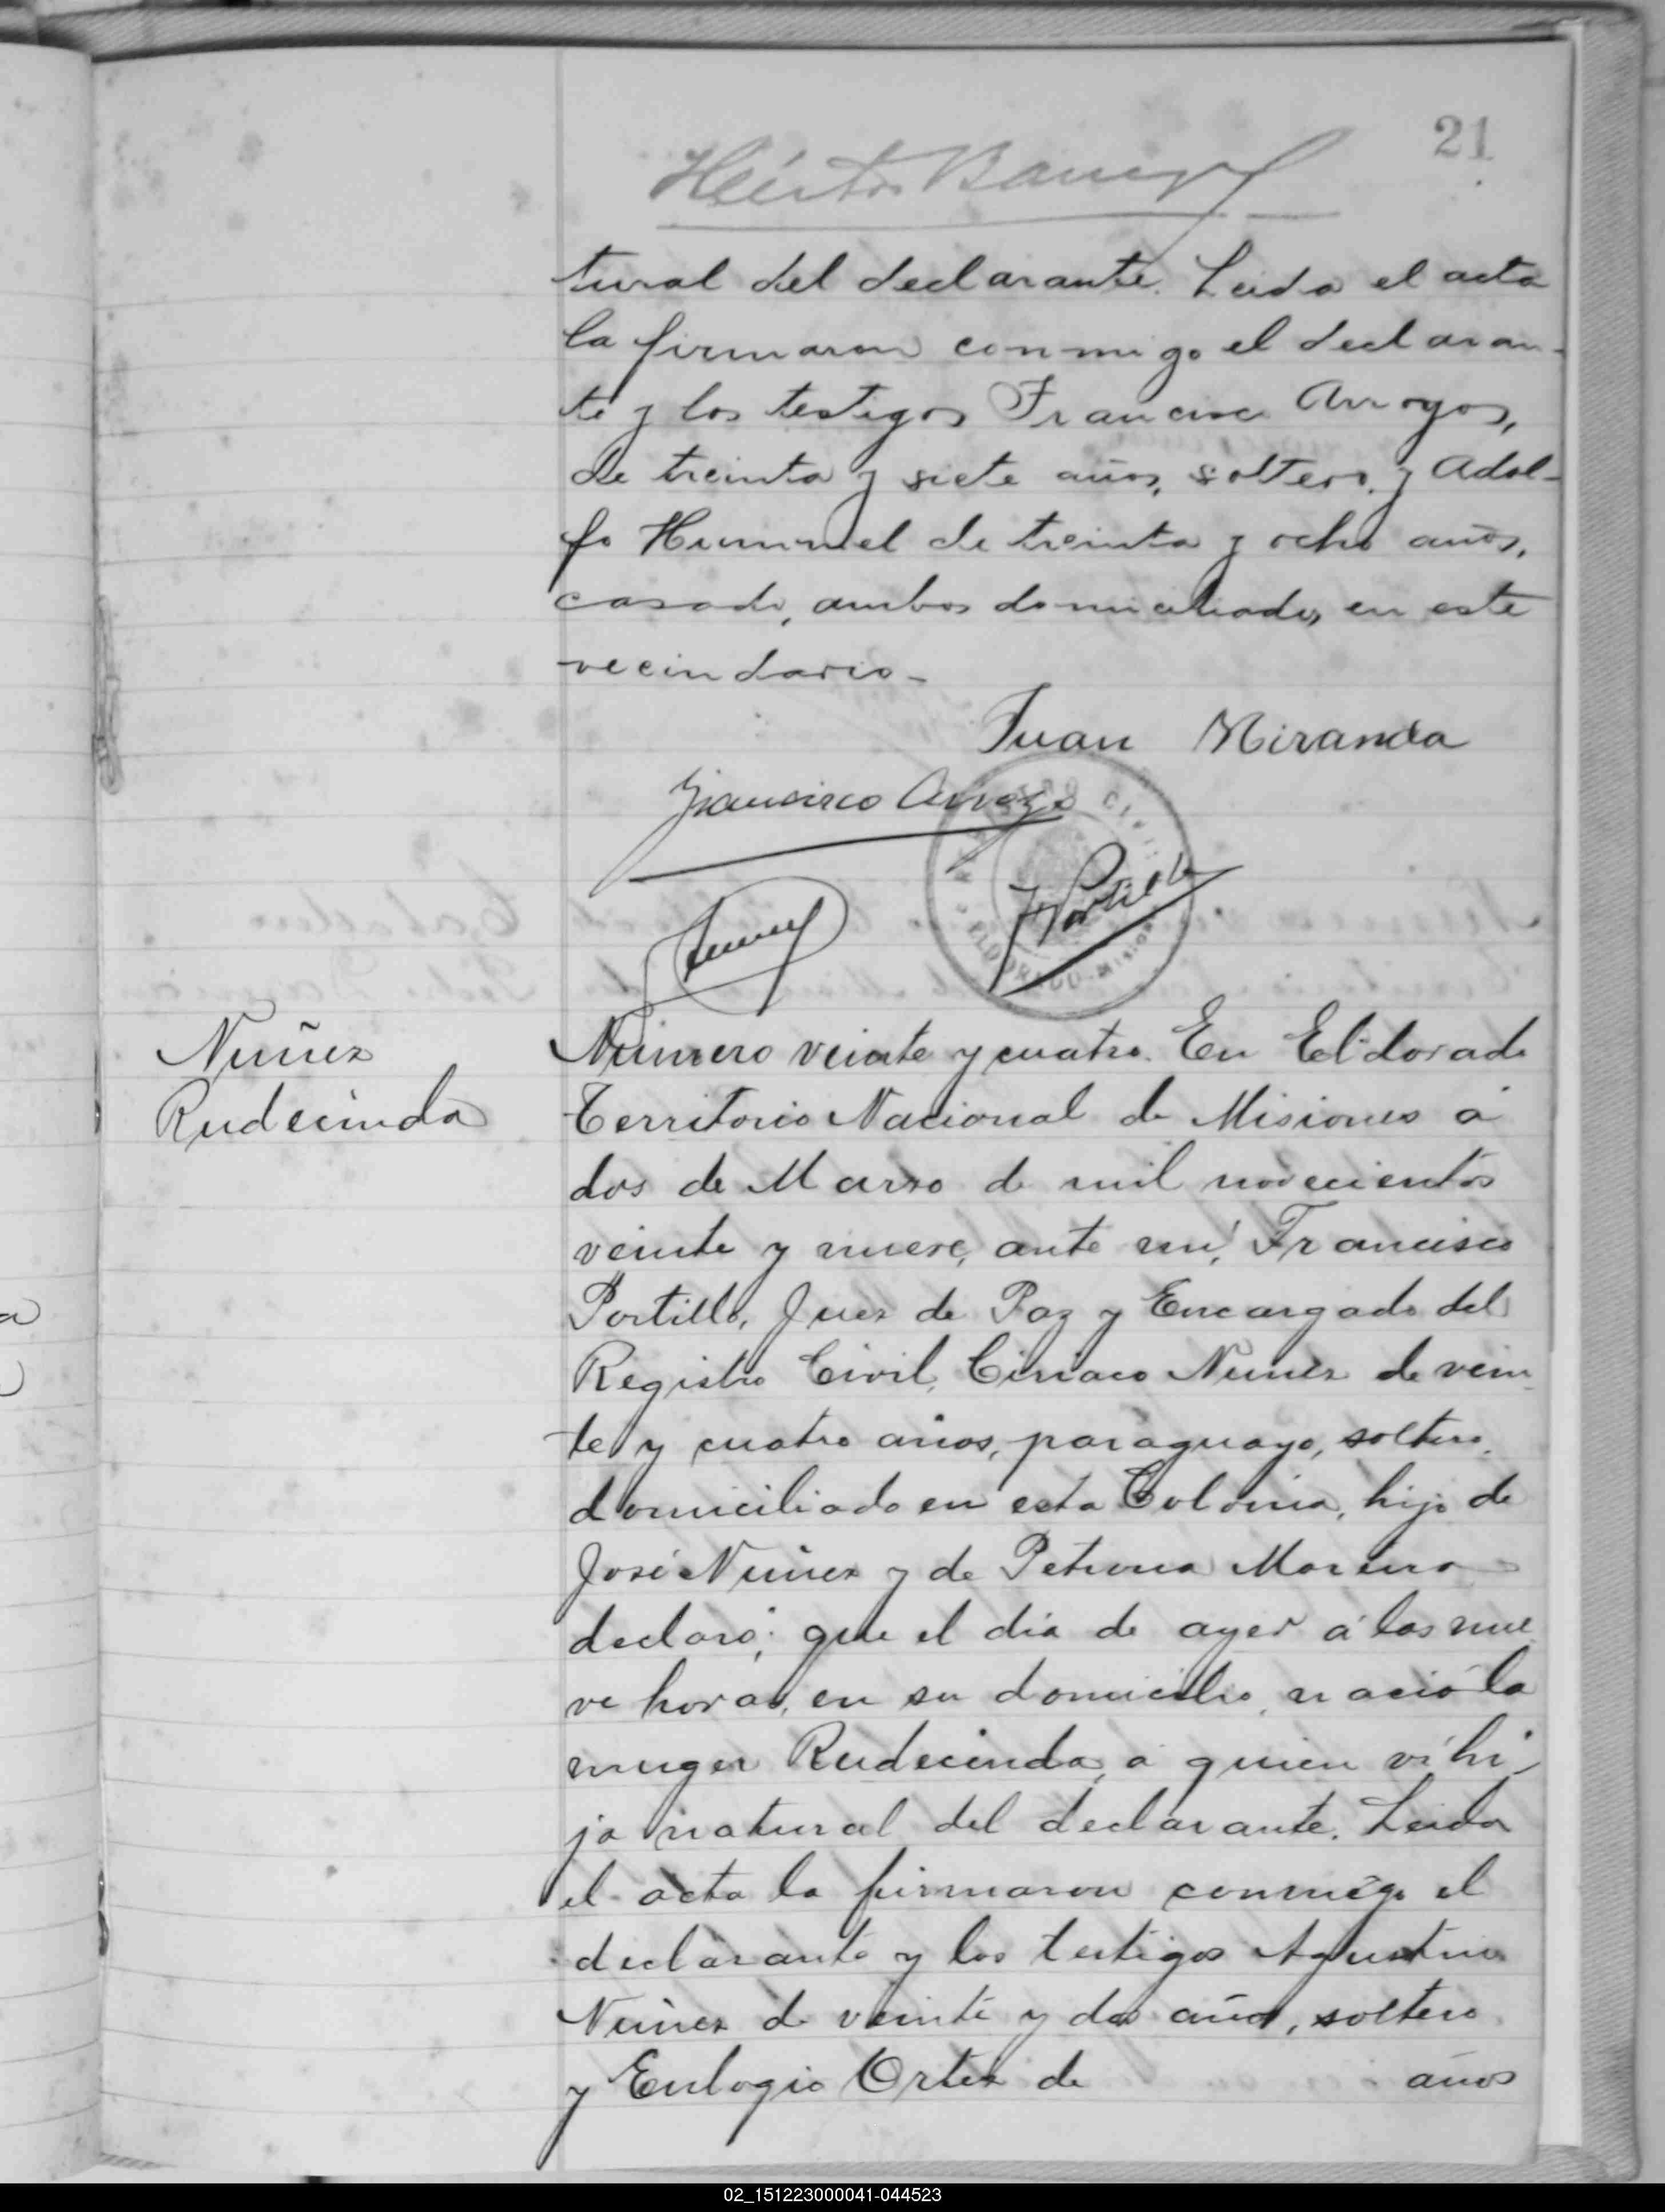 21
Héctor
tural del declarante. Leida el acta
la firmaron conmigo el declaran-
te y los testigos Francisco Arroyos,
de treinta y siete años, soltero, y Adol-
fo Hummel de treinta y ocho años,
casado, ambos domiciliados en este
vecindario-
Juan Miranda
Francisco Arroyo
F Portillo
ELDORADO
Nuñez
Rudecinda
Número veinte y cuatro. En Eldorado
Territorio Nacional de Misiones á
dos de Marzo de mil novecientos
veinte y nueve, ante mí, Francisco
Portillo, Juez de Paz y Encargado del
Registro Civil, Ciriaco Nuñez de vein-
te y cuatro años, paraguayo, soltero,
domiciliado en esta Colonia, hijo de
José Nuñez y de Petrona Moreira
declaró; que el dia de ayer á las nue
ve horas, en su domicilio, nació la
muger Rudecinda, á quien ví hi-
ja natural del declarante. Leida
el acta la firmaron conmigo el
declarante y los testigos Agustin
Nuñez de veinte y dos años, soltero
y Eulogio Ortez de años
02_151223000041-044523